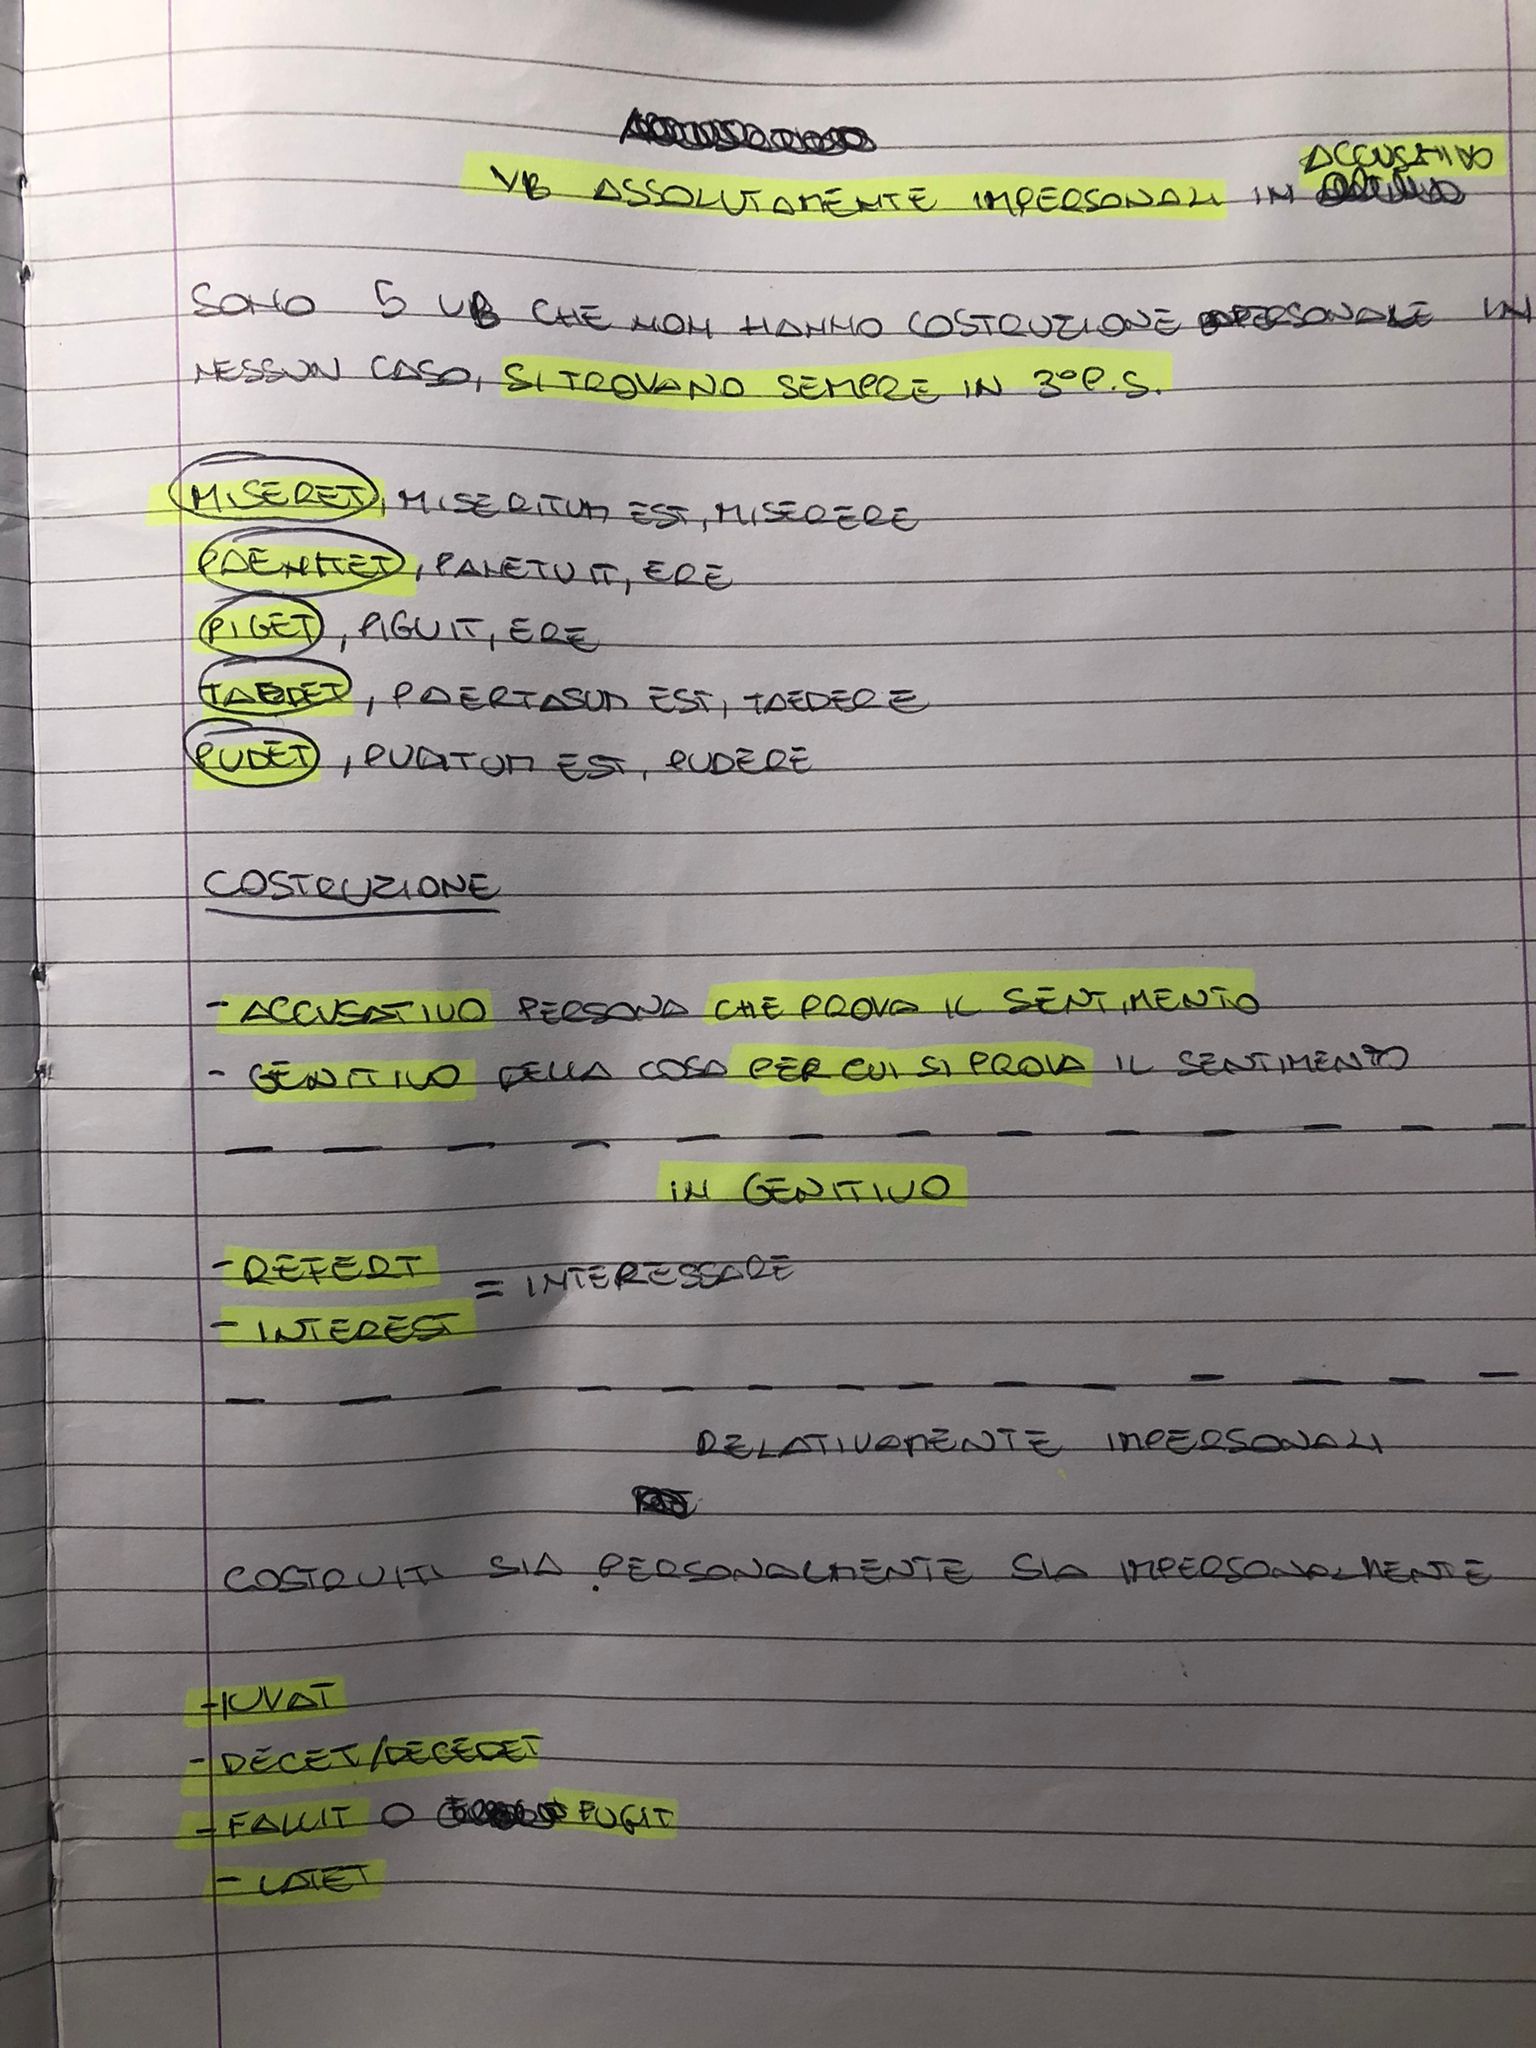 ACCUSATIVO
VB ASSOLUTAMENTE IMPERSONALI IN
SONO 5 VB CHE NON HANNO COSTRUZIONE PERSONALE IN
NESSUN CASO, SI TROVANO SEMPRE IN 3° P.S.
MISERET, MISERITUM EST, MISERERE
PAENITET, PANETUIT, ERE
PIGET, PIGUIT, ERE
TAEDET, PAERTASUM EST, TAEDERE
PUDET, PUDITUM EST, PUDERE
COSTRUZIONE
- ACCUSATIVO PERSONA CHE PROVA IL SENTIMENTO
- GENITIVO DELLA COSA PER CUI SI PROVA IL SENTIMENTO
IN GENITIVO
- REFERT
= INTERESSARE
- INTEREST
RELATIVAMENTE IMPERSONALI
COSTRUITI SIA PERSONALMENTE SIA IMPERSONALMENTE
- IUVAT
- DECET/DECEDET
- FALLIT O FUGIT
- LATET